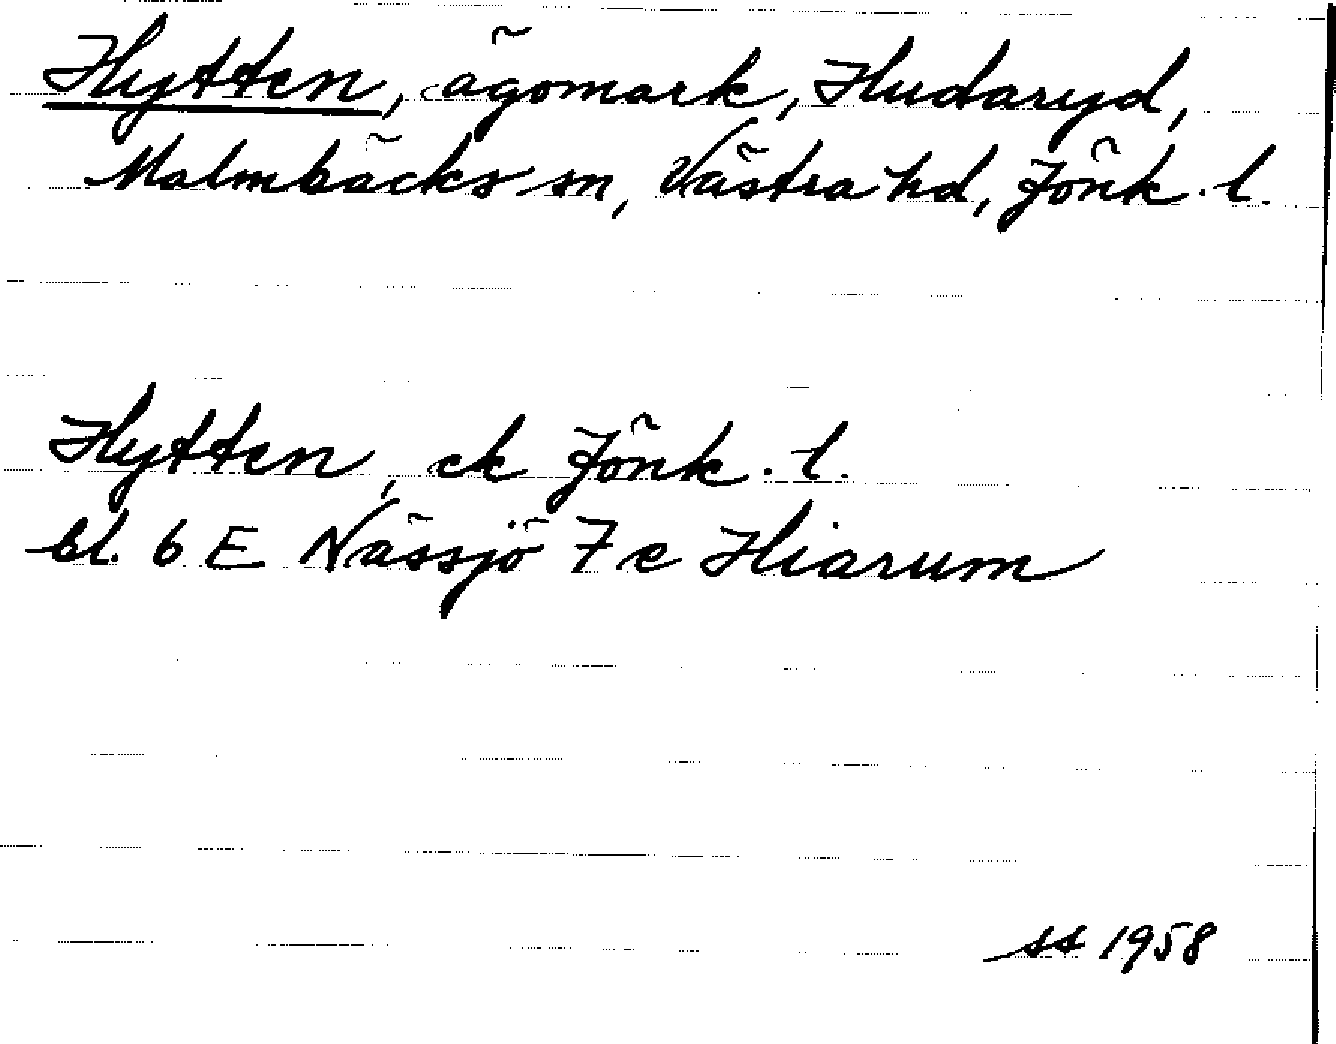 Hytten, ägomark, Hudaryd,
Malmbäcks sn, Västra hd, Jönk. l.
Hytten, ek Jönk. l.
bl. 6 E Nässjö 7 c Hiarum
SS 1958